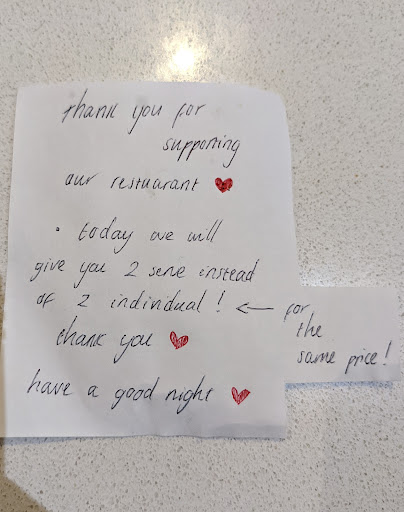 thank you for
supporting
our restuarant
• today we will
give you 2 serve instead
of 2 individual! ← for
the
same price!
thank you
have a good night